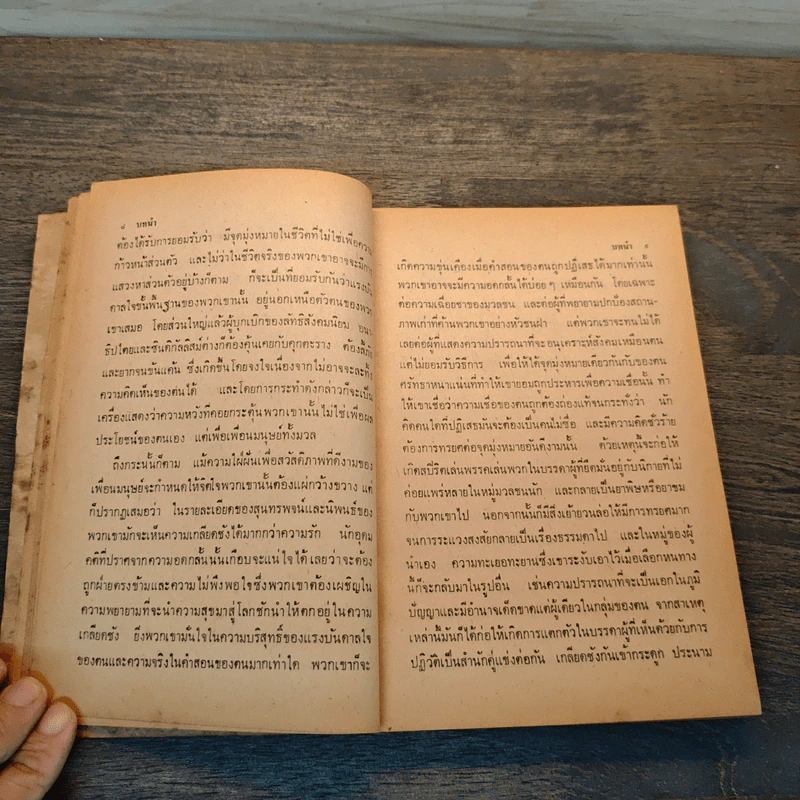 ๘ บทนำ
ต้องได้รับการยอมรับว่า มีจุดมุ่งหมายในชีวิตที่ไม่ใช่เพื่อความ
ก้าวหน้าส่วนตัว และไม่ว่าในชีวิตจริงของพวกเขาอาจจะมีการ
แสวงหาส่วนตัวอยู่บ้างก็ตาม ก็จะเป็นที่ยอมรับกันว่าแรงบัน
ดาลใจขั้นพื้นฐานของพวกเขานั้น อยู่นอกเหนือตัวตนของพวก
เขาเสมอ โดยส่วนใหญ่แล้วผู้บุกเบิกของลัทธิสังคมนิยม อนา
ธิปไตยและซินดิกัลลิสม์ต่างก็ต้องคุ้นเคยกับคุกตะราง ต้องลี้ภัย
และยากจนข้นแค้น ซึ่งเกิดขึ้นโดยจงใจเนื่องจากไม่อาจจะละทิ้ง
ความคิดเห็นของตนได้ และโดยการกระทำดังกล่าวก็จะเป็น
เครื่องแสดงว่าความหวังที่คอยกระตุ้นพวกเขานั้น ไม่ใช่เพื่อผล
ประโยชน์ของตนเอง แต่เพื่อเพื่อนมนุษย์ทั้งมวล
ถึงกระนั้นก็ตาม แม้ความใฝ่ฝันเพื่อสวัสดิภาพที่ดีงามของ
เพื่อนมนุษย์จะกำหนดให้จิตใจพวกเขานั้นต้องแผ่กว้างขวาง แต่
ก็ปรากฏเสมอว่า ในรายละเอียดของสุนทรพจน์และนิพนธ์ของ
พวกเขามักจะเห็นความเกลียดชังได้มากกว่าความรัก นักอุดม
คติที่ปราศจากความอดกลั้นนั้นเกือบจะแน่ใจได้เลยว่าจะต้อง
ถูกฝ่ายตรงข้ามและความไม่พึงพอใจซึ่งพวกเขาต้องเผชิญใน
ความพยายามที่จะนำความสุขมาสู่โลกชักนำให้ตกอยู่ในความ
เกลียดชัง ยิ่งพวกเขามั่นใจในความบริสุทธิ์ของแรงบันดาลใจ
ของตนและความจริงในคำสอนของตนมากเท่าใด พวกเขาก็จะ
บทนำ ๙
เกิดความขุ่นเคืองเมื่อคำสอนของตนถูกปฏิเสธได้มากเท่านั้น
พวกเขาอาจจะมีความอดกลั้นได้บ่อยๆ เหมือนกัน โดยเฉพาะ
ต่อความเฉื่อยชาของมวลชน และต่อผู้ที่พยายามปกป้องสถาน-
ภาพเก่าที่ค้านพวกเขาอย่างหัวชนฝา แต่พวกเขาจะทนไม่ได้
เลยต่อผู้ที่แสดงความปรารถนาที่จะอนุเคราะห์สังคมเหมือนตน
แต่ไม่ยอมรับวิธีการ เพื่อให้ได้จุดมุ่งหมายเดียวกันกับของตน
ศรัทธาหนาแน่นที่ทำให้เขายอมถูกประหารเพื่อความเชื่อนั้น ทำ
ให้เขาเชื่อว่าความเชื่อของตนถูกต้องถ่องแท้จนกระทั่งว่า นัก
คิดคนใดที่ปฏิเสธมันจะต้องเป็นคนไม่ซื่อ และมีความคิดชั่วร้าย
ต้องการทรยศต่อจุดมุ่งหมายอันดีงามนั้น ด้วยเหตุนี้จะก่อให้
เกิดสปิริตเล่นพรรคเล่นพวกในบรรดาผู้ที่ยึดมั่นอยู่กับนิกายที่ไม่
ค่อยแพร่หลายในหมู่มวลชนนัก และกลายเป็นยาพิษหรือยาขม
กับพวกเขาไป นอกจากนั้นก็มีสิ่งเย้ายวนล่อให้มีการทรยศมาก
จนการระแวงสงสัยกลายเป็นเรื่องธรรมดาไป และในหมู่ของผู้
นำเอง ความทะเยอทะยานซึ่งเขาระงับเอาไว้เมื่อเลือกหนทาง
นี้ก็จะกลับมาในรูปอื่น เช่นความปรารถนาที่จะเป็นเอกในภูมิ
ปัญญาและมีอำนาจเด็ดขาดแต่ผู้เดียวในกลุ่มของตน จากสาเหตุ
เหล่านี้มันก็ได้ก่อให้เกิดการแตกตัวในบรรดาผู้ที่เห็นด้วยกับการ
ปฏิวัติเป็นสำนักคู่แข่งต่อกัน เกลียดชังกันเข้ากระดูก ประนาม